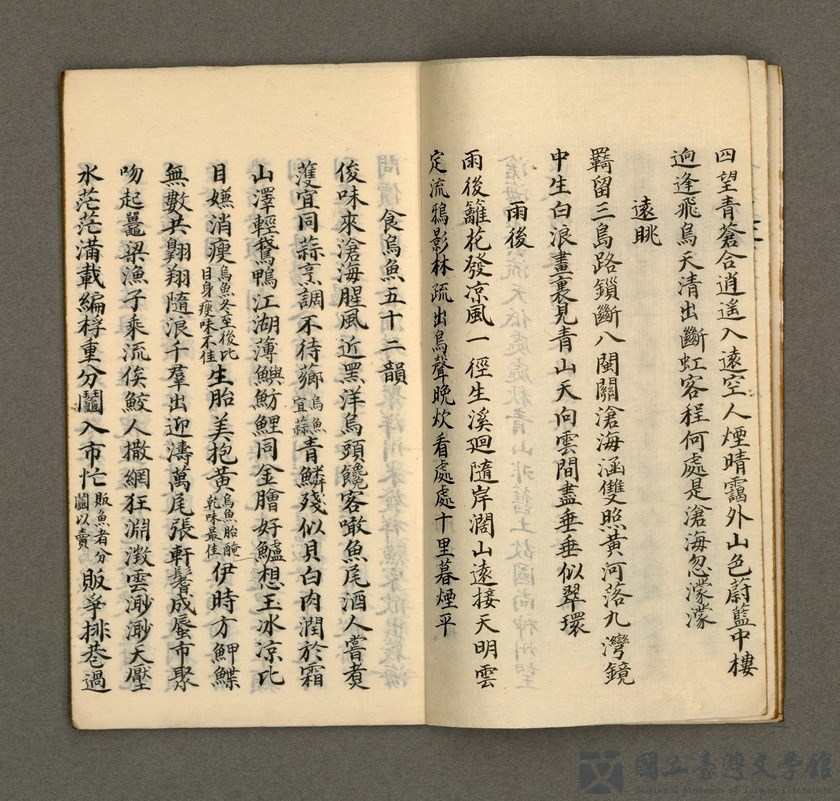 四望青蒼合逍遙入遠空人煙晴靄外山色蔚藍中樓
逈逢飛鳥天清出斷虹客程何處是滄海忽濛濛
遠眺
羇留三島路鎖斷八閩關滄海涵雙照黃河落九灣鏡
中生白浪畫裏見青山天向雲間盡垂垂似翠環
雨後
雨後籬花發凉風一徑生溪廻隨岸濶山遠接天明雲
定流鴉影林疏出鳥聲晚炊看處處十里暮煙平
食烏魚五十二韻
俊味來滄海腥風近黑洋烏頭饞客噉魚尾酒人嘗煑
蒦宜同蒜烹調不待薌烏魚宜蒜青鱗殘似貝白肉潤於霜
山澤輕鵞鴨江湖薄鱮魴鯉同金膾好鱸想玉冰凉比
目嫌消瘦烏魚冬至後比目身瘦味不佳生胎美抱黃烏魚胎醃乾味最佳伊時方魻鰈
無數共翺翔隨浪千羣出迎濤萬尾張軒鬐成蜃市聚
吻起鼉梁漁子乘流俟鮫人撒網狂淵澂雲渺渺天壓
水茫茫滿載編桴重分鬮入市忙販魚者分鬮以賣販爭排巷過
國立臺灣文學館
National Museum of Taiwan Literature